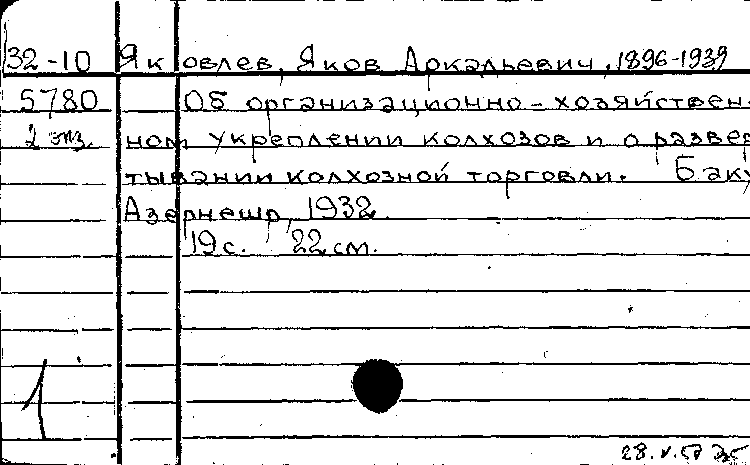 32-10 Яковлев, Яков Аркадьевич, 1896-1939
5780 Об организационно-хозяйствен-
2 экз. ном укреплении колхозов и о развер
тывании колхозной торговли. Баку
Азернешр, 1932.
19 с. 22 см.
1
28.V.58